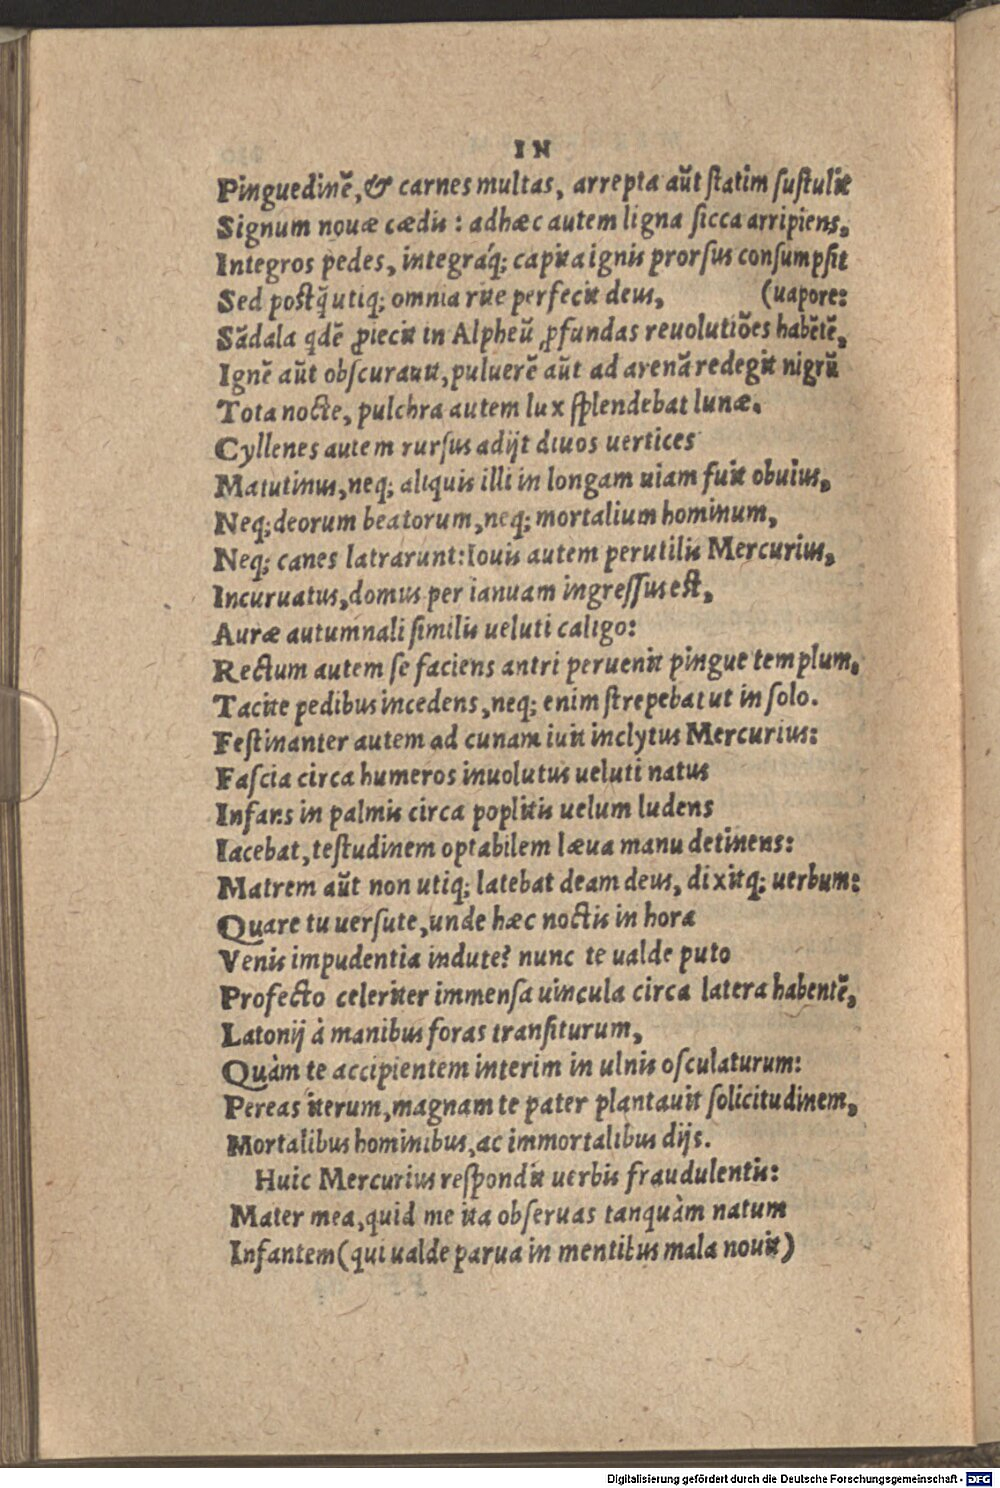 IN
Pinguedinē, & carnes multas, arrepta aūt ſtatim ſuſtulit
Signum nouæ cædis : adhæc autem ligna ſicca arripiens,
Integros pedes, integráq; capita ignis prorſus conſumpſit
Sed postq̃ utiq; omnia rite perfecit deus, (uapore:
Sādala qdē ꝓiecit in Alpheū ꝓfundas reuolutiōes habētē,
Ignē aūt obſcurauit, puluerē aūt ad arenā redegit nigrū
Tota nocte, pulchra autem lux ſplendebat lunæ.
Cyllenes autem rurſus adijt diuos uertices
Matutinus, neq; aliquis illi in longam uiam fuit obuius,
Neq; deorum beatorum, neq; mortalium hominum,
Neq; canes latrarunt: Iouis autem perutilis Mercurius,
Incuruatus, domus per ianuam ingreſſus eſt,
Auræ autumnali ſimilis ueluti caligo:
Rectum autem ſe faciens antri peruenit pingue templum,
Tacite pedibus incedens, neq; enim ſtrepebat ut in ſolo.
Feſtinanter autem ad cunam iuit inclytus Mercurius:
Faſcia circa humeros inuolutus ueluti natus
Infans in palmis circa poplitis uelum ludens
Iacebat, teſtudinem optabilem læua manu detinens:
Matrem aūt non utiq; latebat deam deus, dixitq; uerbum:
Quare tu uerſute, unde hæc noctis in hora
Venis impudentia indute? nunc te ualde puto
Profecto celeriter immenſa uincula circa latera habentē,
Latonij à manibus foras tranſiturum,
Quàm te accipientem interim in ulnis oſculaturum:
Pereas iterum, magnam te pater plantauit ſolicitudinem,
Mortalibus hominibus, ac immortalibus dijs.
Huic Mercurius reſpondit uerbis fraudulentis:
Mater mea, quid me ita obſeruas tanquàm natum
Infantem (qui ualde parua in mentibus mala nouit)
Digitalisierung gefördert durch die Deutsche Forschungsgemeinschaft - DFG